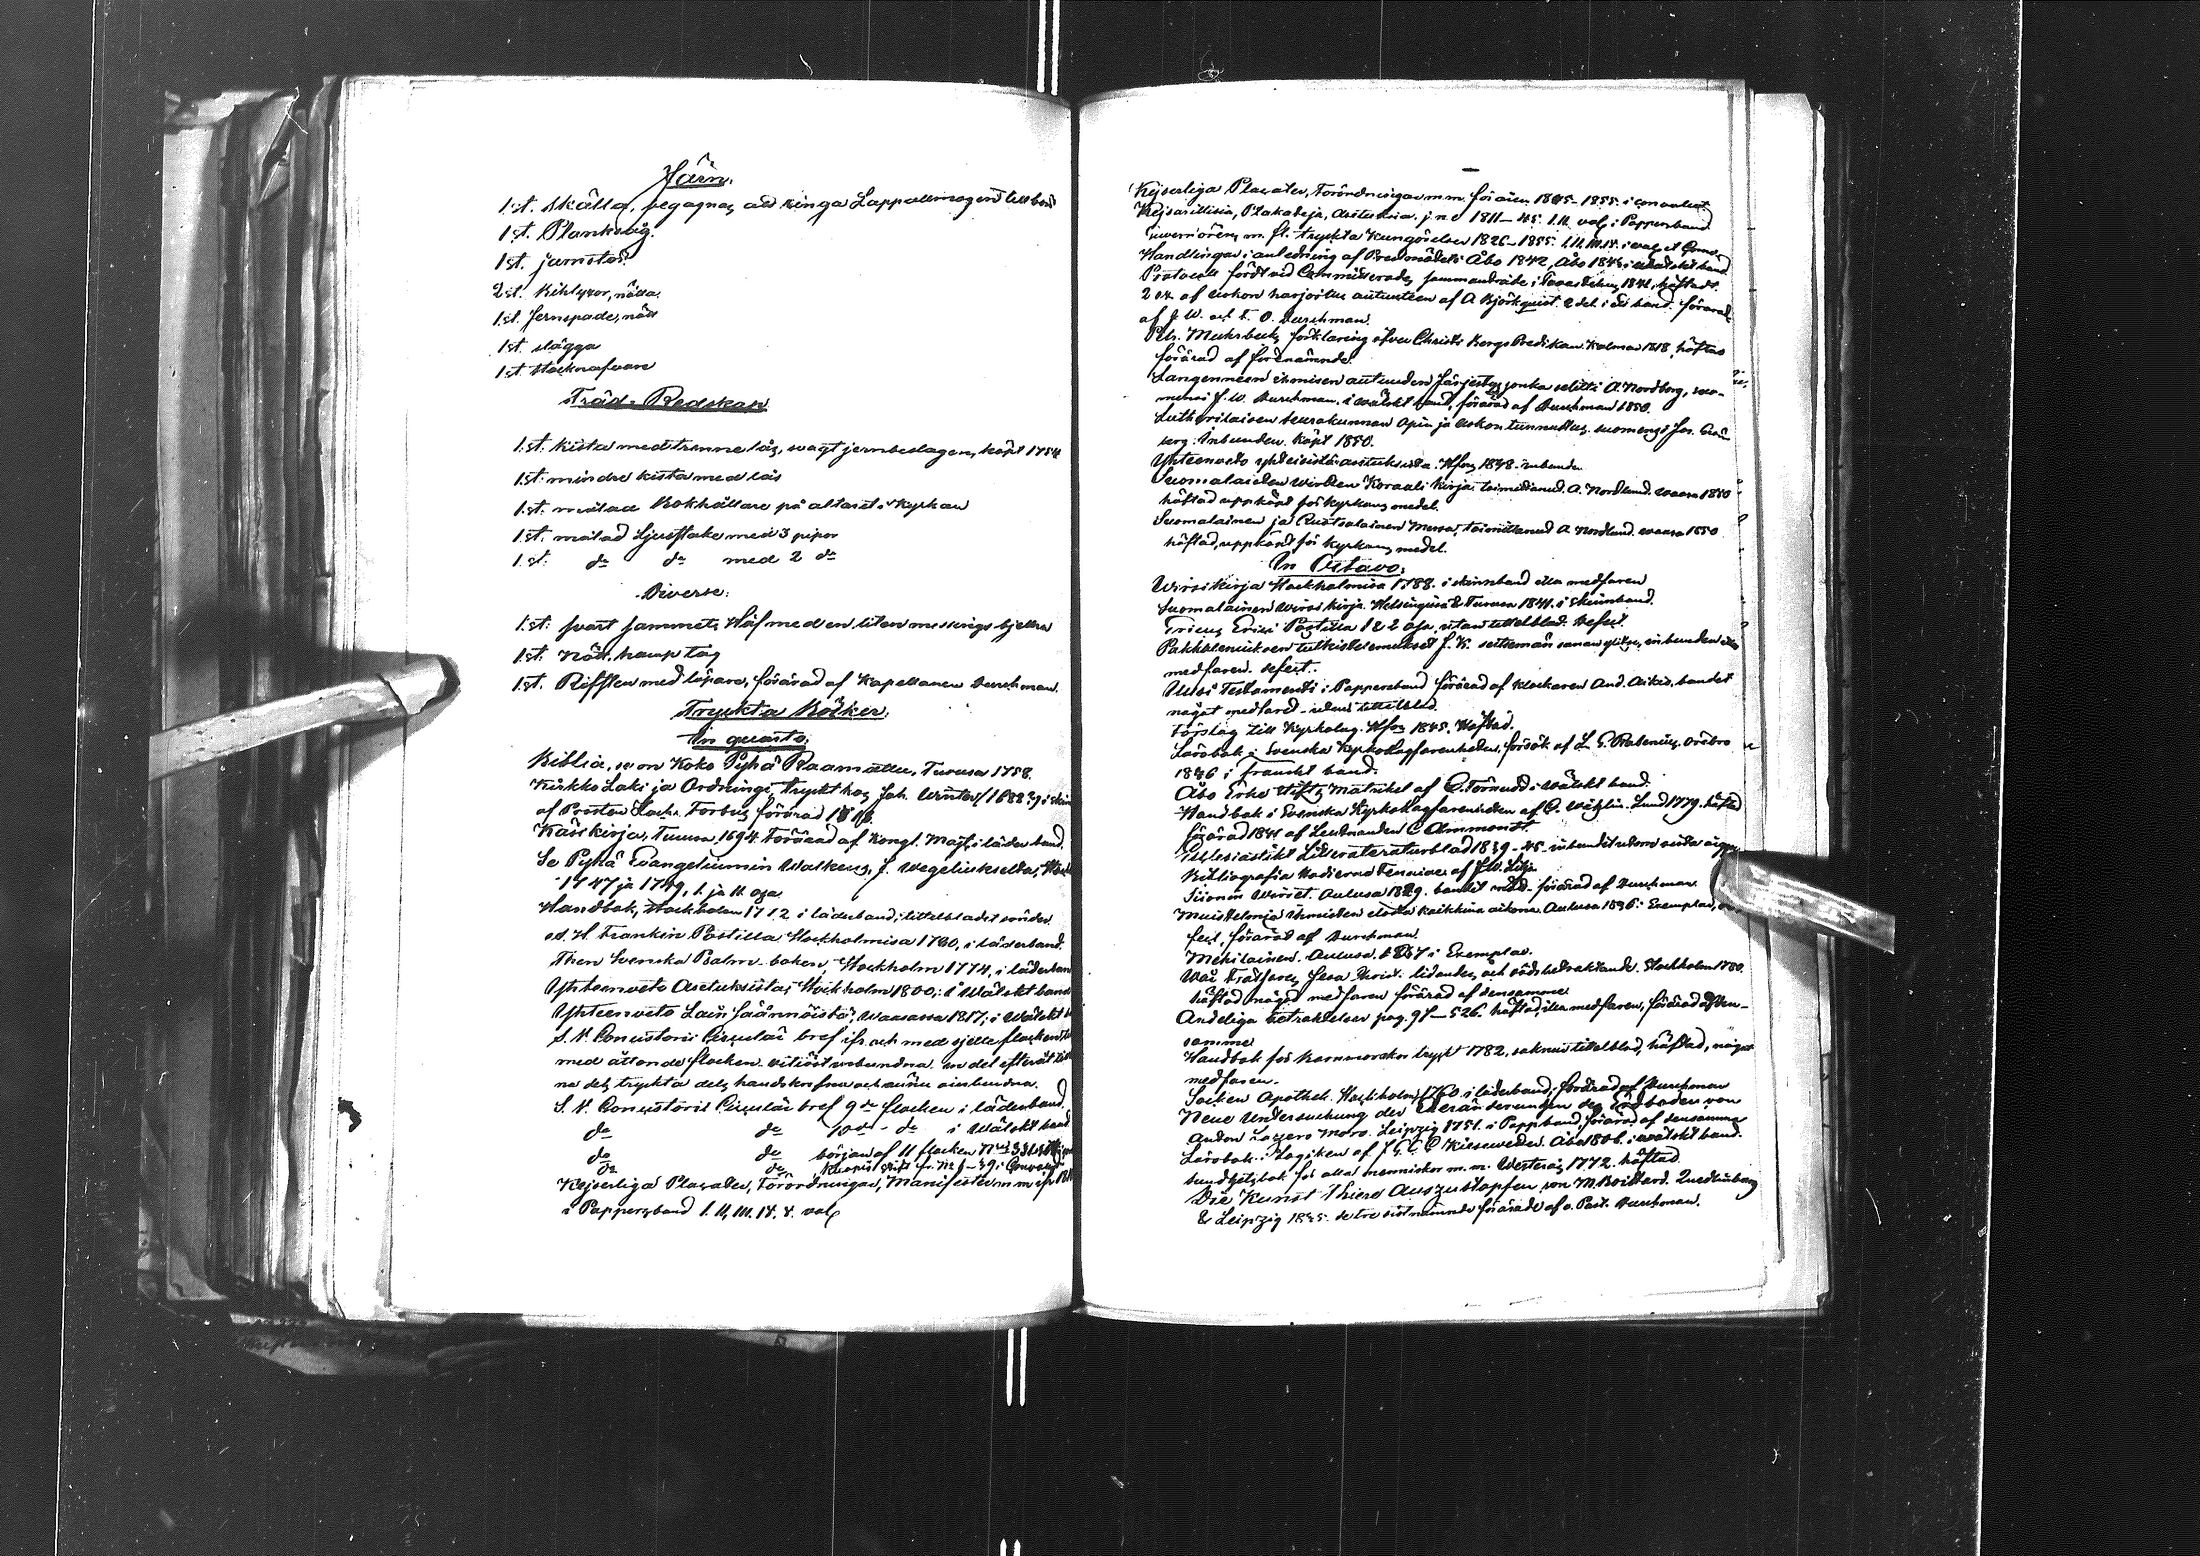 Järn.
1 st. skälla, begagnas att ringa Lappallmogen till bön
1 st. Planksåg.
1 st. jernstör
2 st. Kihlyxor, nötta.
1 st. Jernspade, nött
1 st. slägga
1 st. stocknafvare
Träd-Redskap
1 st. Kista med trenne lås, wagt jernbeslagen, köpt 1754
1 st. mindre kista med lås
1 st. målad Bokhållare på altaret i Kyrkan
1 st. målad Ljusstake med 3 pipor
1 st. do do med 2 do
Diverse:
1 st. svart sammets Håf med en liten messings bjellra
1 st. Nött
1 st. med löpare, förärad af Kapellanen Durchman.
Tryckta Böcker.
In quarto.
Biblia, se on Koko Pyhä Raamattu, Turusa 1758.
Kirkko Laki ja Ordningi, tryckt hos Joh. 1688
af Prosten Zach. Forbus förärad
Käsikirja, Turusa 1694. Förärad af Kongl. Maj:t i läder band.
Se Pyhä Evangeliumin Walkeus, J. Wegeliukselda,
1747 ja 1749, I. ja II. osa
Handbok, Stockholm 1712 i läderband, tittelbladet sönder
And. H. Franken Postilla Stockholmisa 1780, i läderband.
Then Svenska Psalm-boken, Stockholm 1774, i läderban
Yhteenveto Asetuksista, Stockholm 1800, i Wälskt band
Yhteenveto Lain Säännöistä, Waasassa 1817, i Wälskt
Consistorii Circulär bref ifr. och med sjette flocken
med åttonde flocken
na dels tryckta dels handskrefna och ännu oinbundna.
Consistorii Circulär bref 9de flocken i läderband.
do do 10de - do i Wälskt band
do do början af 11 flocken
do do
Kejserliga Placater, Förordningar, Manifester m m ifr.
i Pappersband I. II. III. IV. V. vol.
Kejserliga Placater, Förordningar m.m. för åren 1845-1855. i convolut
Keisarillisia, Plakateja, Asetuksia j. n. e 1811-45. I. II. vol. i Pappersband
m. fl. tryckta Kungörelser 1826-1855. I. II. III. IV. i vol. et Conv.
Handlingar i anledning af Prestmötets Åbo 1842, Åbo 1843 i wälskt band
Protocoll fördt vid Committerades sammanträde i Tavastehus, 1841, häftadt.
2 ex. af uskon harjoitus autuuteen af A Björkquist. 2 del. i ett band. förärad
af J. W. och E. O. Durchman.
Petr. Muhrbecks förklaring öfver Christi Bergs Predikan. Kalmar 1818. häftad
förärad af förenämnde.
Langenneen ihmisen autuuden Järjestys, jonka selitti A. Nordberg, suo-
mensi J. W. Durchman. i wälskt band, förärad af Durchman 1850.
Lutherilaisen seurakunnan Opin ja uskon tunnustus. suomensi Jos.
berg. Inbunden. Köpt 1850.
Yhteenveto yhteisistä asetuksista. Hfors 1848. inbunden
Suomalaisten wirtten Koraali Kirja, toimittanut A. Nordlund. Waasa 1850
häftad uppköpt för kyrkans medel.
Suomalainen ja Ruotsalainen Messu, toimittanut A. Nordlund. Waasa 1850
häftad, uppköpt för Kyrkans medel.
In Octavo:
Wirsikirja Stockholmisa 1788. i skinnband illa medfaren
Suomalainen Wirsikirja. Helsingissä & Turussa 1841. i skinnband.
Erici Postilla 1 & 2 osa, utan tittelblad. Defect.
medfaren. defect.
Uusi Testamenti i Pappersband förärad af klockaren And. Aikio, bandet
något medfaret - utan tittelblad.
Förslag till Kyrkolag. Hfors 1845. Häftad.
Lärobok i Svenska Kyrkolagfarenheten, försök af L. G. Rabenius. Örebro
1846 i franskt band.
Åbo Erke Stifts Matrikel af C. Törnudd i wälskt band.
Handbok i Svenska Kyrkolagfarenheten af C. Wåhlin. Lund 1779. häftad
förärad 1841 af Leutnanden C Almmondt.
Ecclesiastikt Litteraturblad 1839-45
Bibliografia Hodierna Fennica af J. W. Lilja.
Siionin Wirret. Oulussa 1829. bandet nött. förärad af Durchman.
Muistelmia ihmisten elosta kaikkina aikoina. Oulussa 1836. Exemplar,
fect, förärad af Durchman.
Mehiläinen. Oulussa. 1837 i Exemplar.
Wår Frälsares Jesu Christi lidandes och dödsbetraktande. Stockholm 1780.
häftad, något medfaren förärad af densamme.
Andeliga betraktelser pag. 97-526. häftad, illa medfaren, förärad af den-
samme
Handbok för Barnmorskor tryckt 1782, saknar tittelblad, häftad, något
medfaren.
Apothek. Stockholm 1760 i läderband, förärad af Durchman
Neue Untersuchung der Veränderungen des Erdbodens von
Anton Lazzaro Moro. Leipzig 1751. i Pappband, förärad af densamme
Lärobok i Logiken af J. G. C. C Kiesewetter. Åbo 1806. i wälskt band.
för alla menniskor m. m. Westerås, 1772. häftad.
Die Kunst Thiere Auszustopfen von M. Boitard. Quedlinburg
& Leipzig 1835. de tre sistnämnde förärade af v. Past. Durchman.